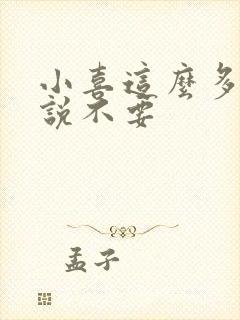 小喜這麼多
說不要
孟子